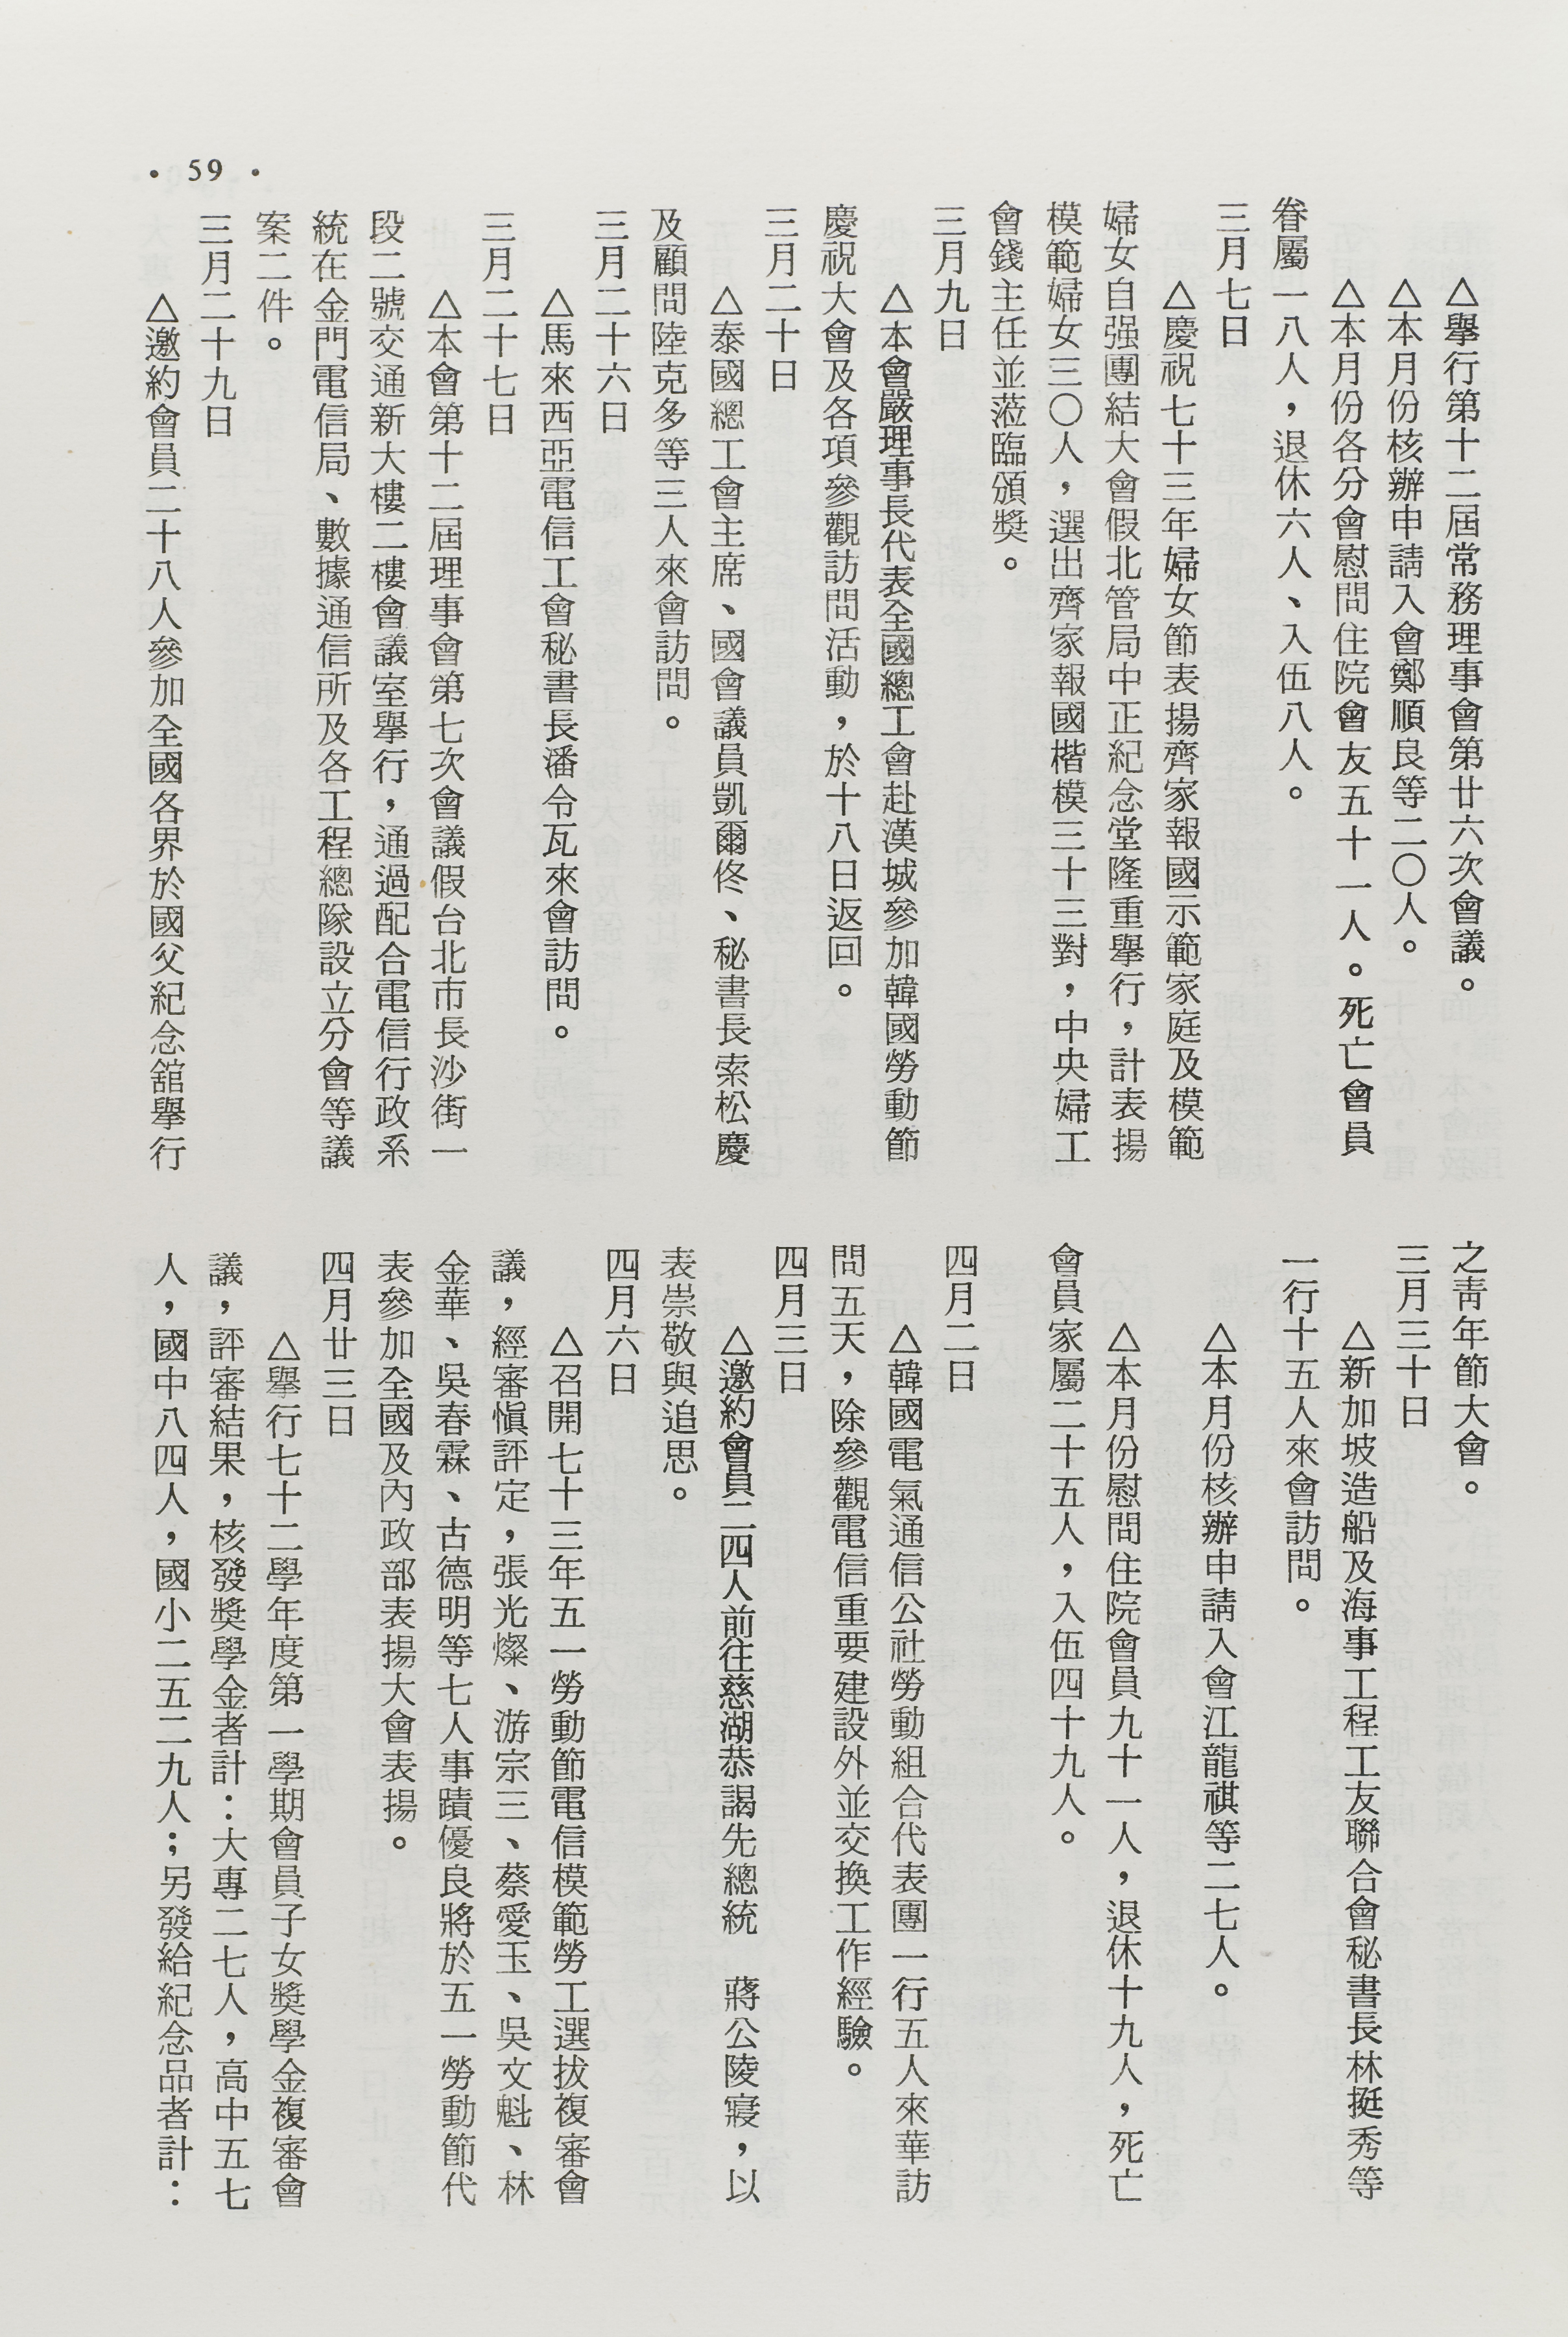 △舉行第十二屆常務理事會第廿六次會議。
△本月份核辦申請入會鄭順良等二〇人。
△本月份各分會慰問住院會友五十一人。死亡會員
眷屬一八人，退休六人、入伍八人。
三月七日
△慶祝七十三年婦女節表揚齊家報國示範家庭及模範
婦女自强團結大會假北管局中正紀念堂隆重舉行，計表揚
模範婦女三〇人，選出齊家報國楷模三十三對，中央婦工
會錢主任並蒞臨頒獎。
三月九日
△本會嚴理事長代表全國總工會赴漢城參加韓國勞動節
慶祝大會及各項參觀訪問活動，於十八日返回。
三月二十日
△泰國總工會主席、國會議員凱爾佟、秘書長索松慶
及顧問陸克多等三人來會訪問。
三月二十六日
△馬來西亞電信工會秘書長潘令瓦來會訪問。
三月二十七日
△本會第十二屆理事會第七次會議假台北市長沙街一
段二號交通新大樓二樓會議室舉行，通過配合電信行政系
統在金門電信局、數據通信所及各工程總隊設立分會等議
案二件。
三月二十九日
△邀約會員二十八人參加全國各界於國父紀念舘舉行
之靑年節大會。
三月三十日
△新加坡造船及海事工程工友聯合會秘書長林挺秀等
一行十五人來會訪問。
△本月份核辦申請入會江龍祺等二七人。
△本月份慰問住院會員九十一人，退休十九人，死亡
會員家屬二十五人，入伍四十九人。
四月二日
△韓國電氣通信公社勞動組合代表團一行五人來華訪
問五天，除參觀電信重要建設外並交換工作經驗。
四月三日
△邀約會員二四人前往慈湖恭謁先總統　蔣公陵寢，以
表崇敬與追思。
四月六日
△召開七十三年五一勞動節電信模範勞工選拔複審會
議，經審愼評定，張光燦、游宗三、蔡愛玉、吳文魁、林
金華、吳春霖、古德明等七人事蹟優良將於五一勞動節代
表參加全國及內政部表揚大會表揚。
四月廿三日
△舉行七十二學年度第一學期會員子女獎學金複審會
議，評審結果，核發獎學金者計：大專二七人，高中五七
人，國中八四人，國小二五二九人；另發給紀念品者計：
• 59 •